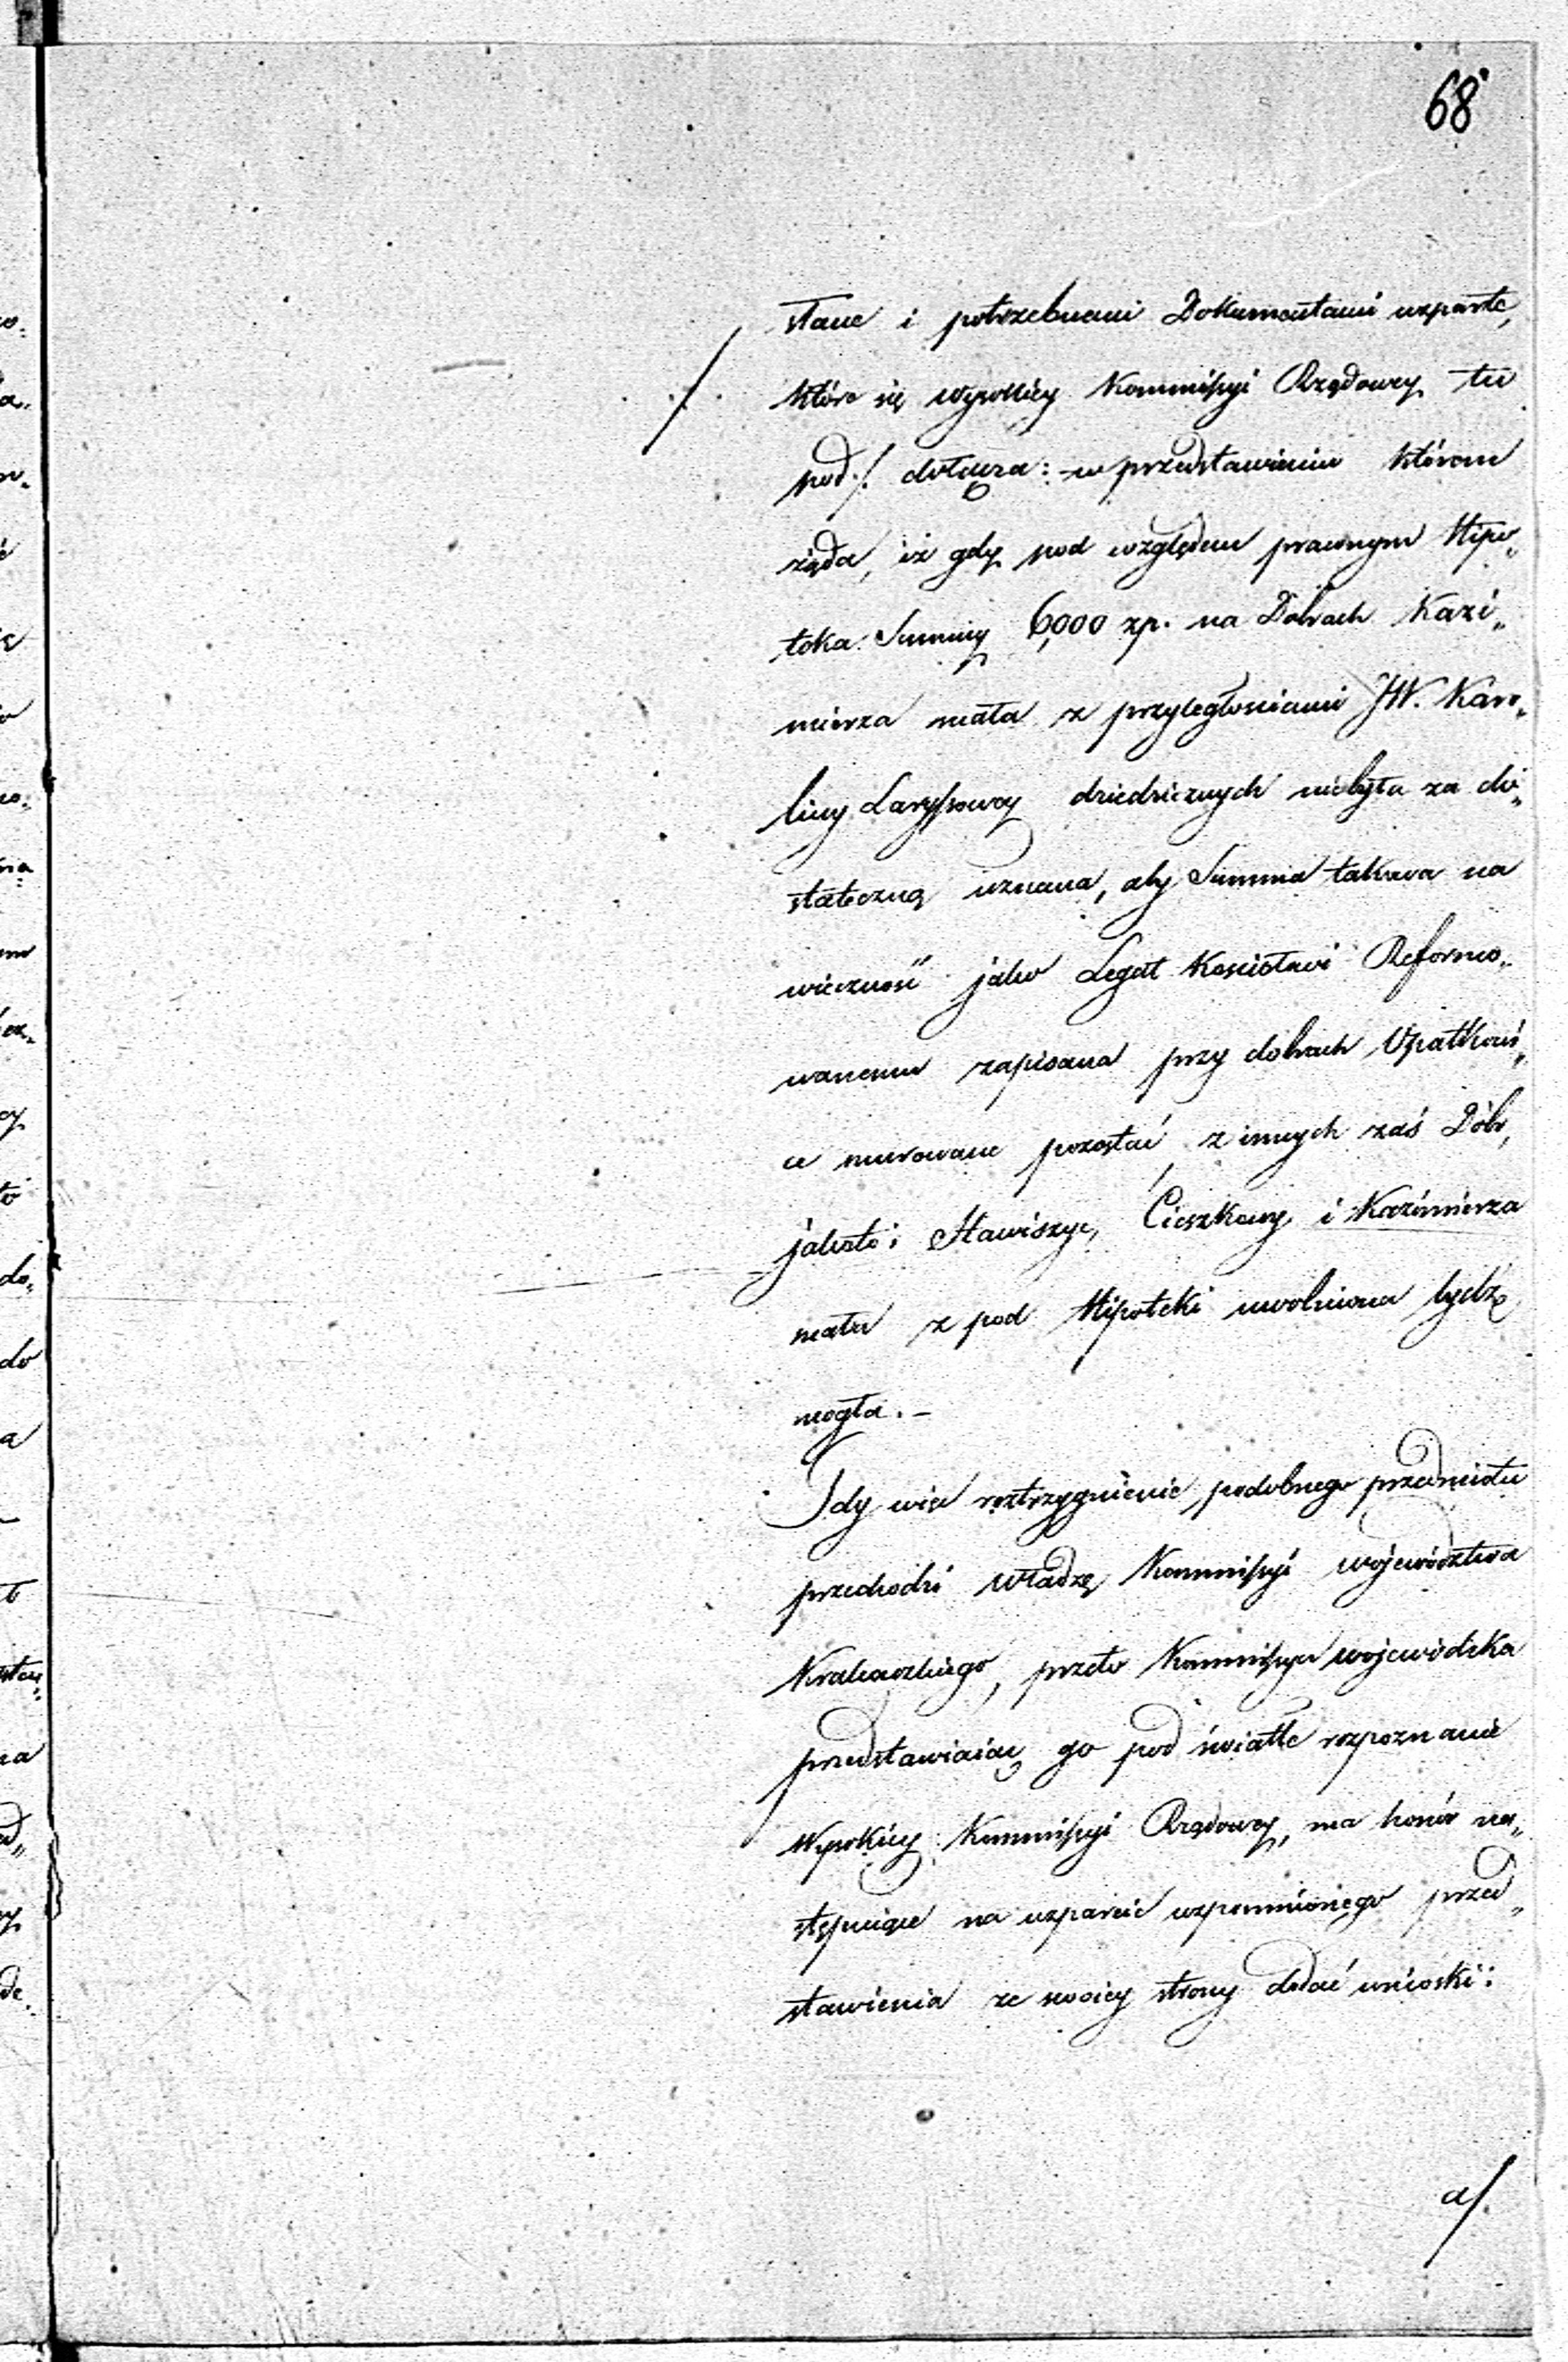 68
stane i potrzebnemi Dokumentami wsparte,
które się Wysokiéy Kommissyi Rządowey tu
./.
pod ./. dołącza: w przedstawieniu którem
żąda, iż gdy pod względem prawnym Hipo„
teka Summy 6,000 zp. na Dobrach Kazi„
mierza mała z przyległościami JW. Karo„
liny Laryssowey dziedzicznych niebyła za do„
stateczną uznana, aby Summa takowa na
wieczność jako Legat Kosciołowi Reformo„
wanemu zapisana przy dobrach Opatkowi„
ce murowane pozostać, z innych zaś Dóbr,
jakoto: Stawiszyc, Cieszkowy i Kazimierza
mała z pod Hipoteki uwolniona bydź
mogła. –
Gdy więc roztrzygnienie podobnego przedmiotu
przechodzi władzę Kommissyi Województwa
Krakowskiego, przeto Kommissya Wojewódzka
przedstawiaiąc go pod światłe rozpoznanie
Wysokiéy Kommissyi Rządowey, ma honór na„
stępuiące na wsparcie wspomnionego przed„
stawienia ze swoiey strony dodać wnioski:
a/.